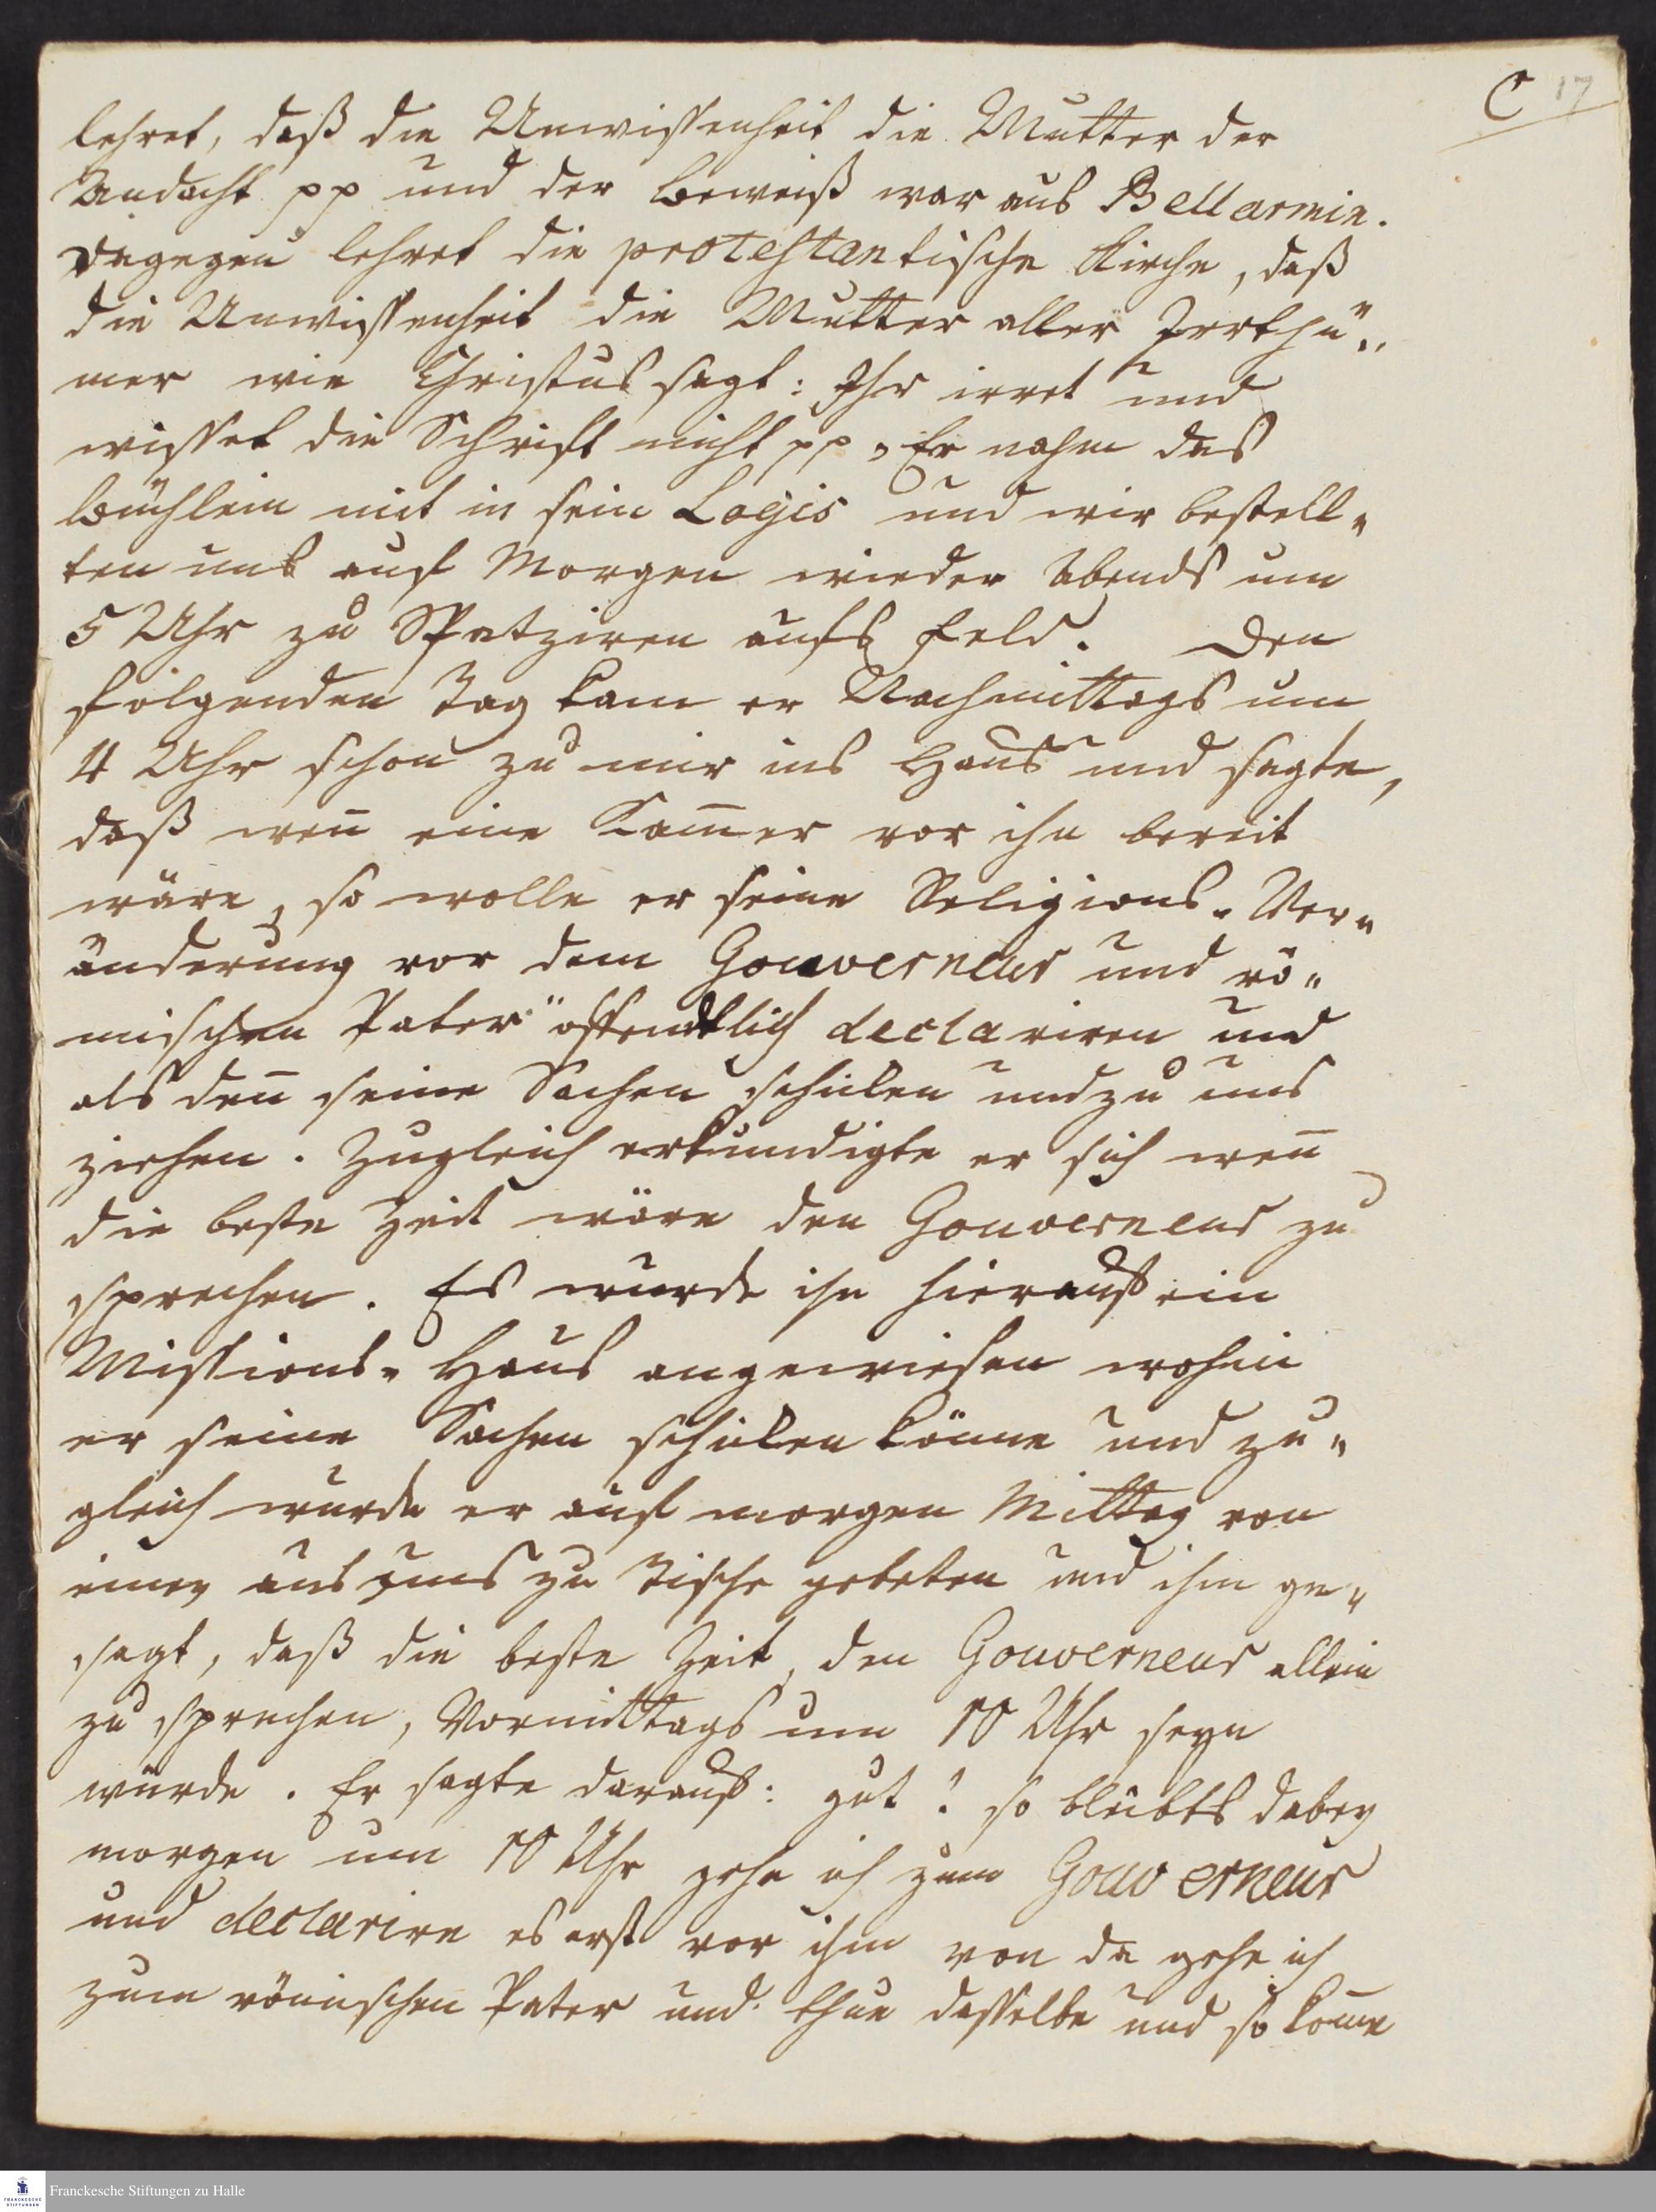 C 17
lehret, daß die Unwissenheit die Mutter der
Andacht pp und der Beweiß war aus Bellarmin.
Dagegen lehret die protestantische Kirche, daß
die Unwissenheit die Mutter aller Irrthü„
mer wie Christus sagt: Ihr irret und
wisset die Schrifft nicht pp. Er nahm das
Büchlein mit in sein Logis und wir bestell„
ten uns auf Morgen wieder Abends um
5 Uhr zu Spatziren aufs Feld. Den
folgenden Tag kam er Nachmittags um
4 Uhr schon zu mir ins Haus und sagte,
daß wen̄ eine Kam̄er vor ihn bereit
wäre, so wolle er seine Religions„Ver„
änderung vor dem Gouverneur und rö„
mischen Pater öffendtlich declariren und
als den̄ seine Sachen schicken und zu uns
ziehen. Zugleich erkundigte er sich wen̄
die beste Zeit wäre den Gouverneur zu
sprechen. Es wurde ihn hierauf ein
Missions„Haus angewiesen wohin
er seine Sachen schicken könne und zu„
gleich wurde er auf morgen Mittag von
einen aus uns zu Tische gebeten und ihm ge„
sagt, daß die beste Zeit, den Gouverneur allein
zu sprechen, Vormittags um 10 Uhr seyn
würde. Er sagte darauf: gut! so bleibts dabey
morgen um 10 Uhr gehe ich zum Gouverneur
und declarire es erst vor ihm von da gehe ich
zum römischen Pater und thue dasselbe und so kom̄e
Franckesche Stiftungen zu Halle